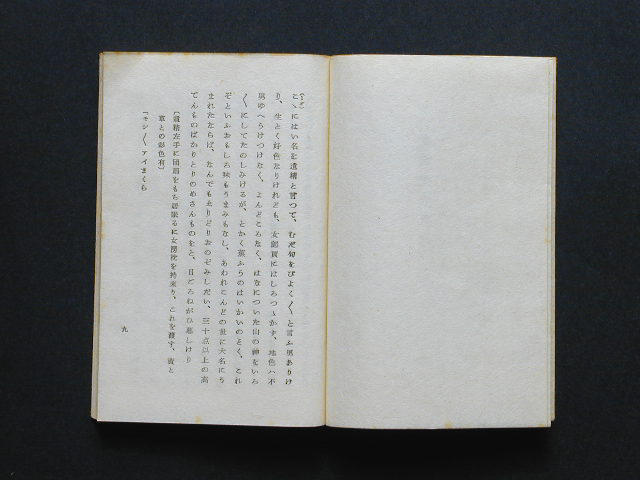 こゝにはい名を道楠と言つて、むだ句をびよく／＼と言ふ男ありけ
り、生とく好色なりけれども、女郎買にはしろつゝかず、地色ハ不
男ゆへうけつけなく、よんどころなく、はなについた山の神をいろ
／＼にしてたのしみけるが、とかく蕉ふうのはいかいのとく、これ
ぞといふおもしろ味もうまみもなし、あわれこんどの世に大名にう
まれたならば、なんでもゑりどりおのぞみしだい、三十点以上の高
てんものばかりとりのめさんものをと、日ごろねがひ暮しけり
〔道楠左手に団扇をもち居眠るに女房枕を持来り、これを渡す、蚊と
草との彩色有〕
「モシ／＼アイまくら
九